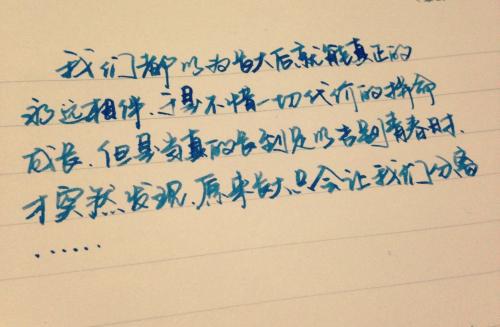 我们都以为长大后就能真正的
永远相伴、于是不惜一切代价的拼命
成长、但是当真的长到足以告别青春时、
才突然发现、原来长大只会让我们分离
......